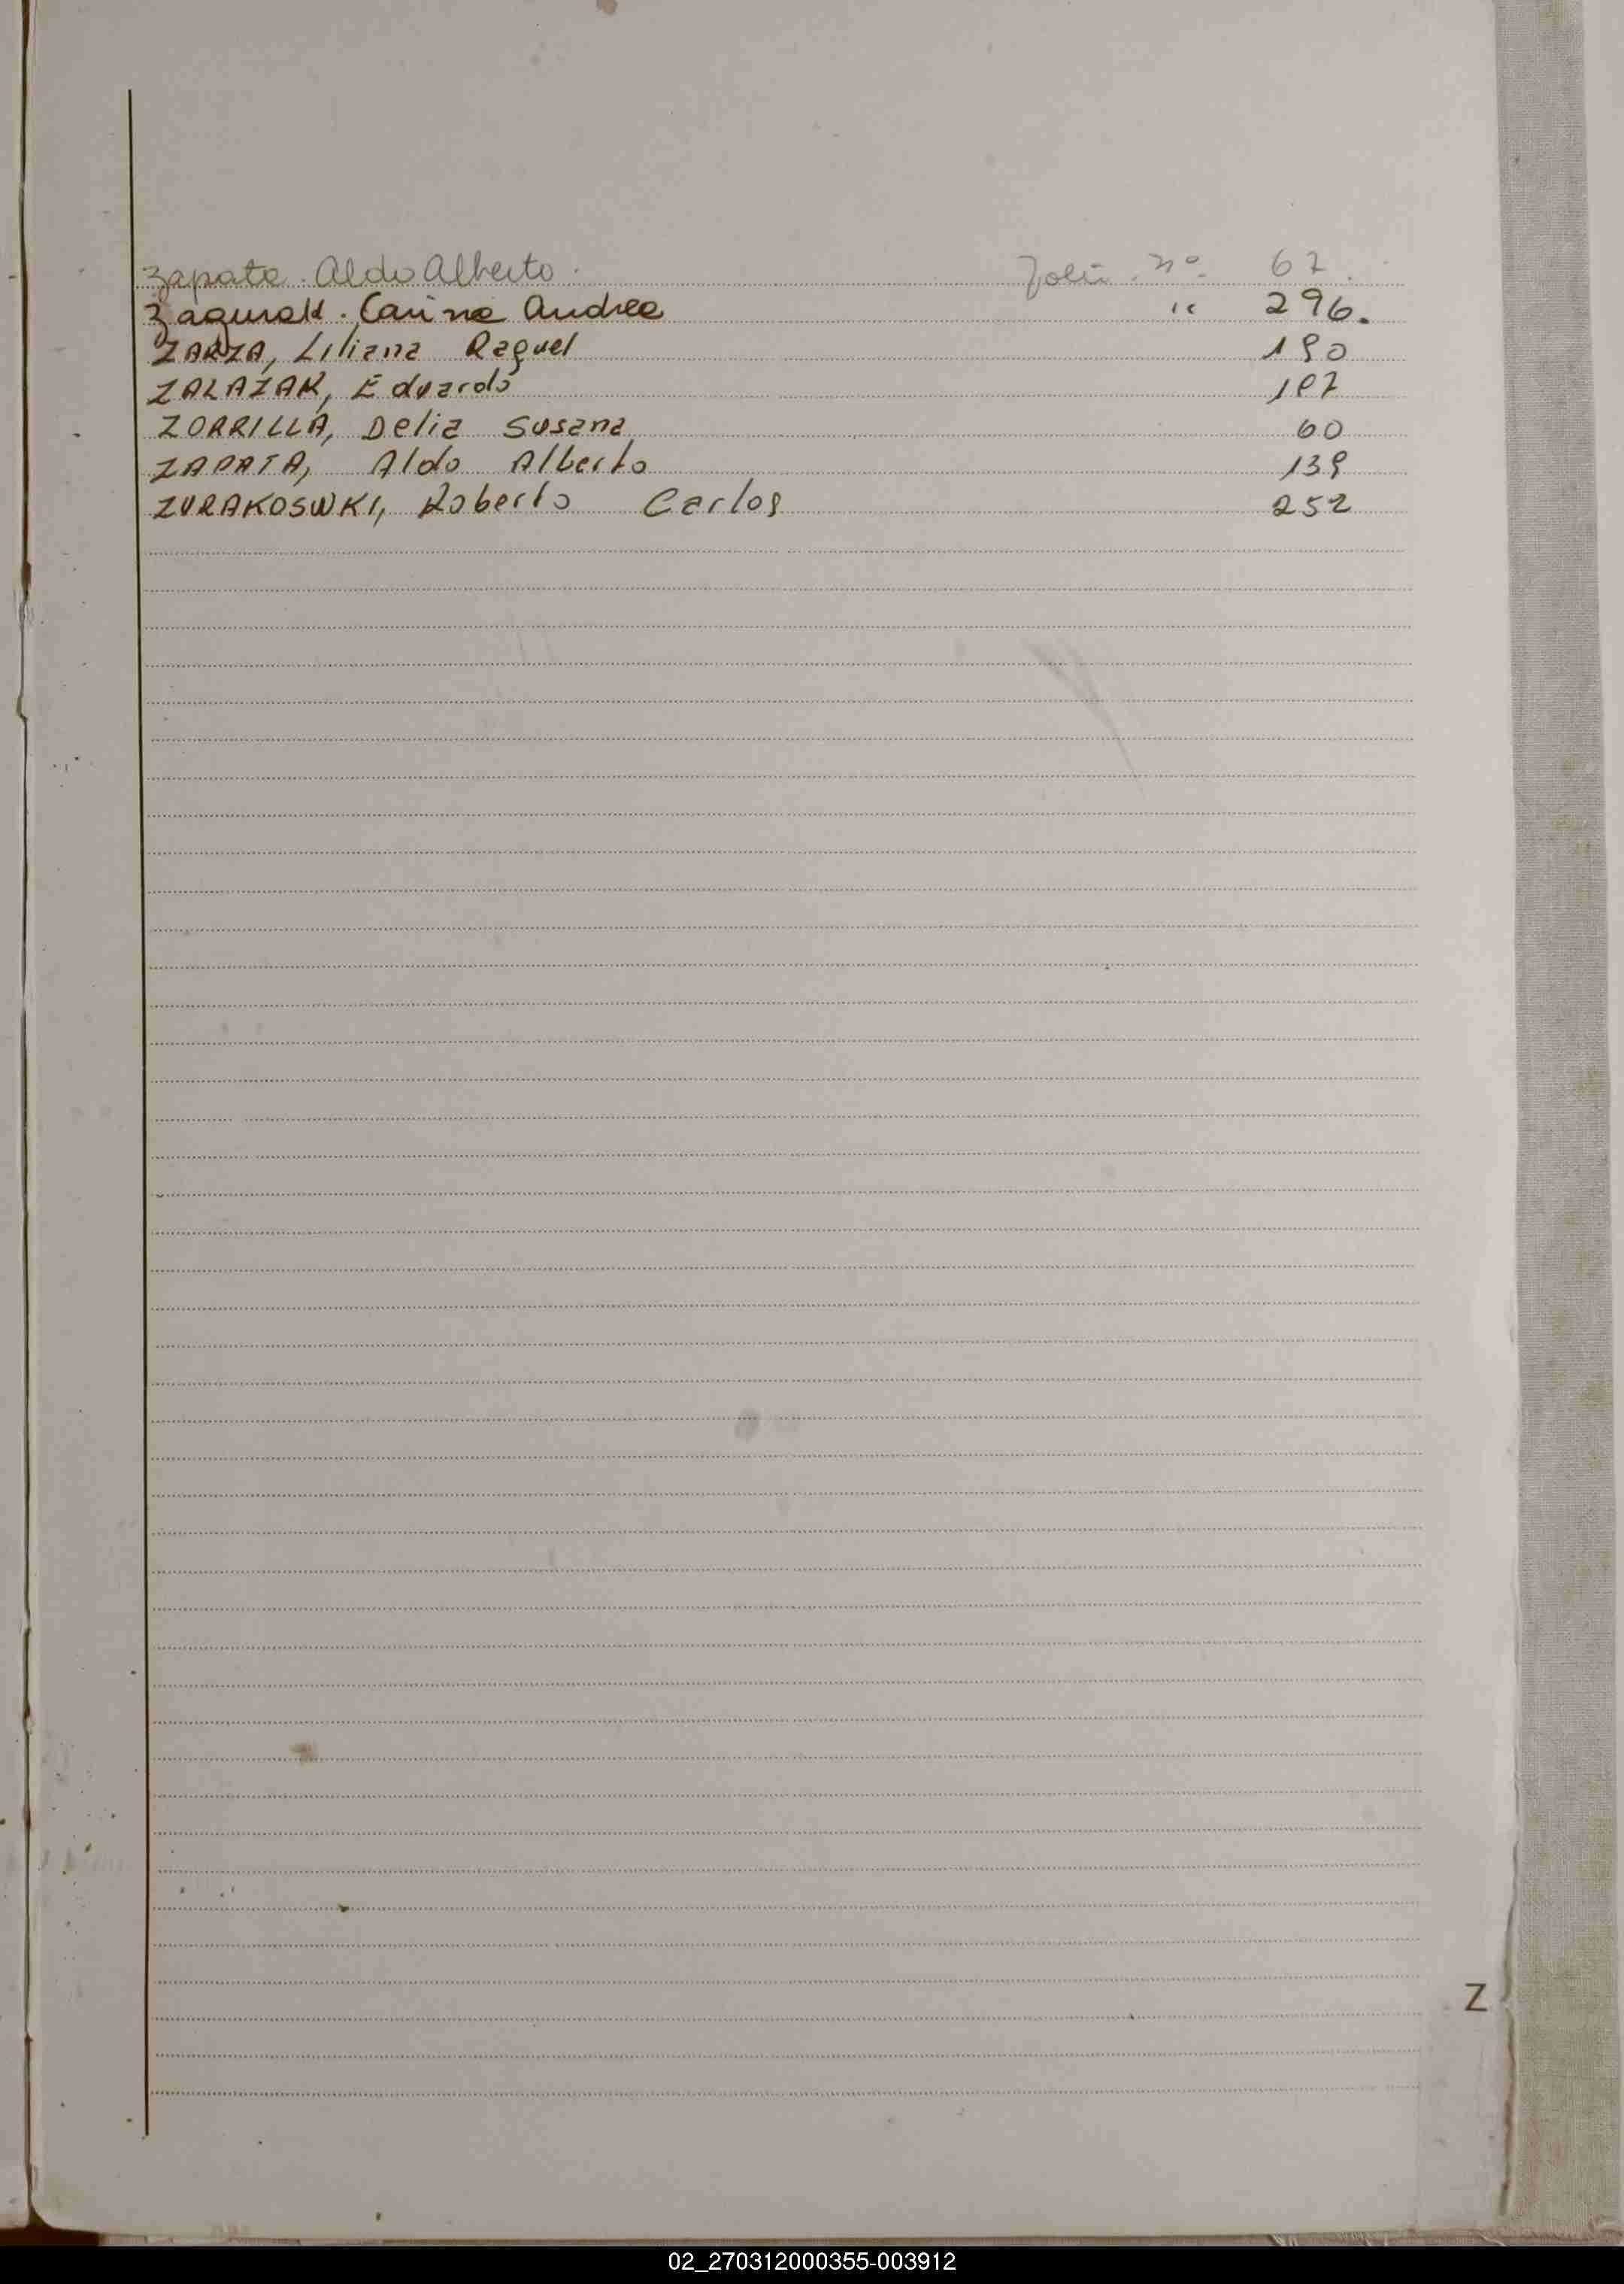 Zapata. Aldo Alberto. Folio. nº. 67.
Zagurak. Carina Andrea " 296.
ZARZA, Liliana Raquel 190
ZALAZAR, Eduardo 187
ZORRILLA, Delia Susana 60
ZAPATA, Aldo Alberto 139
ZURAKOSWKI, Roberto Carlos 252
Z
02_270312000355-003912